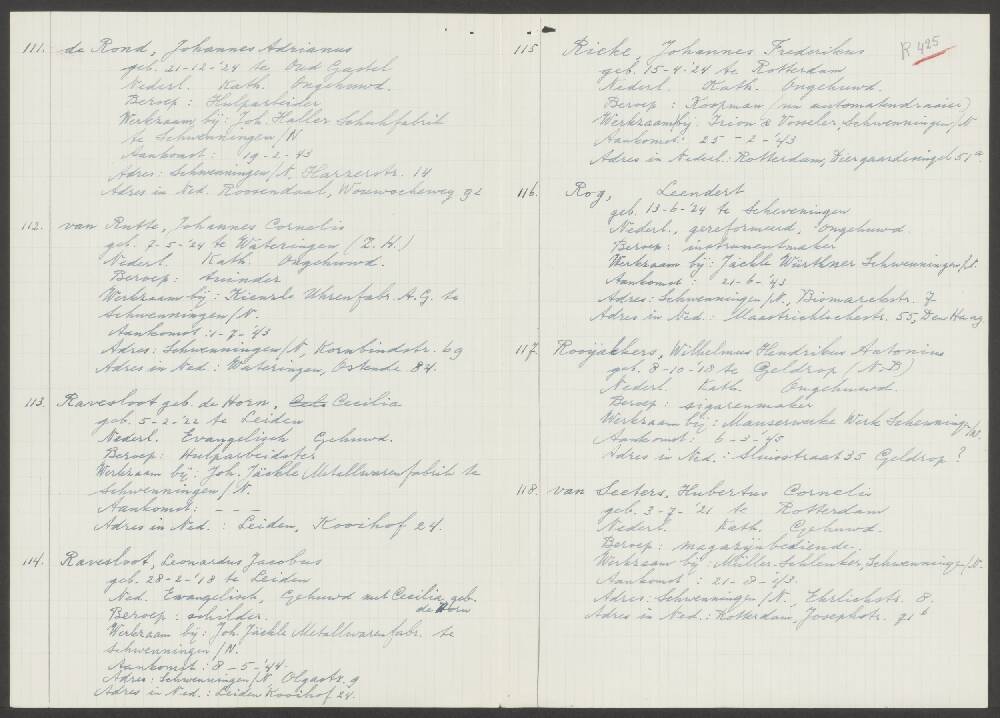 111. de Rond, Johannes Adrianus
geb. 21-12-'24 te Oud Gastel
Nederl. Kath. Ongehuwd.
Beroep: Hulparbeider
Werkzaam bij: Joh. Haller Schuhfabrik
te Schwenningen/N
Aankomst: 19-2-43
Adres: Schwenningen/N, Harzerstr. 14
Adres in Ned. Roosendaal, Wouwscheweg 92
112. van Rutte, Johannes Cornelis
geb. 7-5-'24 te Wateringen (Z.H.)
Nederl. Kath. Ongehuwd.
Beroep: tuinder
Werkzaam bij: Kienzle Uhrenfabr. A.G. te
Schwenningen/N.
Aankomst: 1-7-'43
Adres: Schwenningen/N, Kornbindstr. 69
Adres in Ned: Wateringen, Ostende 84.
113. Ravesloot geb. de Horn, Cecilia
geb. 5-2-'22 te Leiden
Nederl. Evangelisch Gehuwd.
Beroep: Hulparbeidster
Werkzaam bij: Joh. Jäckle Metallwarenfabrik te
Schwenningen/N.
Aankomst: - - -
Adres in Ned.: Leiden, Kooihof 24.
114. Ravesloot, Leonardus Jacobus
geb. 28-2-'18 te Leiden
Ned. Evangelisch, Gehuwd met Cecilia geb.
de Horn
Beroep: schilder.
Werkzaam bij: Joh. Jäckle Metallwarenfabr. te
Schwenningen/N.
Aankomst: 8-5-'44.
Adres: Schwenningen/N, Olgastr. 9
Adres in Ned.: Leiden Kooihof 24.
R 425
115 Ricke, Johannes Frederikus
geb. 15-4-'24 te Rotterdam
Nederl. Kath. Ongehuwd.
Beroep: Koopman (nu automatendraaier)
Werkzaam bij: Irion & Vosseler, Schwenningen/N
Aankomst: 25-2-'43
Adres in Nederl: Rotterdam, Diergaardesingel 51a
116. Rog, Leendert
geb. 13-6-'24 te Scheveningen
Nederl., gereformeerd, Ongehuwd.
Beroep: instrumentmaker
Werkzaam bij: Jäckle Würthner Schwenningen/N.
Aankomst: 21-6-'43
Adres: Schwenningen/N., Bismarckstr. 7
Adres in Ned.: Maastrichtschestr. 55, Den Haag
117. Rooyakkers, Wilhelmus Hendrikus Antonius
geb. 8-10-'18 te Geldrop (N.B)
Nederl. Kath. Ongehuwd.
Beroep: sigarenmaker
Werkzaam bij: Mauserwerke Werk Schwenningen/N.
Aankomst: 6-3-'45
Adres in Ned.: Sluisstraat 35 Geldrop?
118. van Seeters, Hubertus Cornelis
geb. 3-7-'21 te Rotterdam
Nederl. Kath. Gehuwd.
Beroep: magazijnbediende.
Werkzaam bij: Müller-Schlenker, Schwenningen/N.
Aankomst: 21-8-'43.
Adres: Schwenningen/N., Ehrlichstr. 8.
Adres in Ned: Rotterdam, Josephstr. 91b